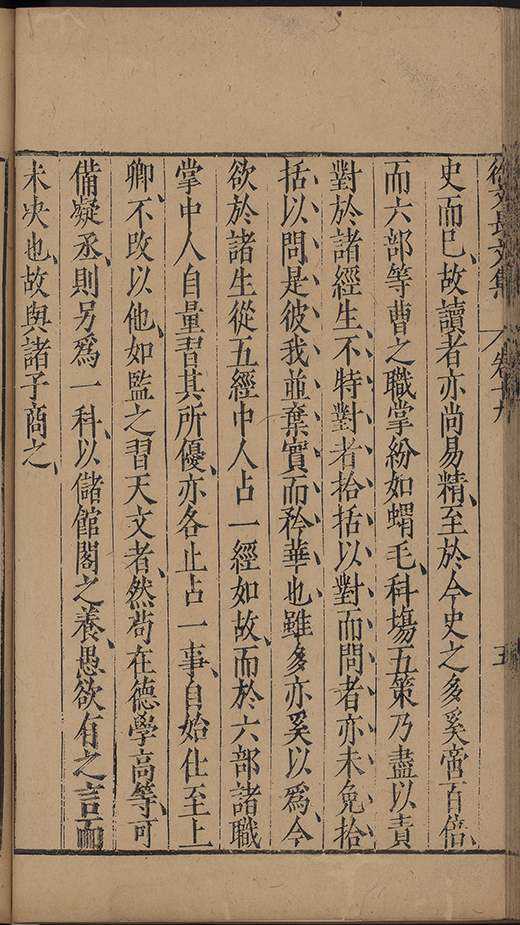 徐文長文集 卷十九 五
史而已、故讀者亦尚易精、至於今史之多奚啻百倍、
而六部等曹之職掌紛如蝟毛、科場五策乃盡以責
對於諸經生、不特對者拾括以對而問者亦未免拾
括以問是彼我並棄實而矜華也、雖多亦奚以爲、今
欲於諸生從五經中人占一經如故、而於六部諸職
掌中人自量習其所優、亦各止占一事、自始仕至上
卿、不攺以他、如監之習天文者、然苟在德學高等、可
備凝丞、則另爲一科、以儲館閣之養、愚欲有之言而
未决也、故與諸子商之、